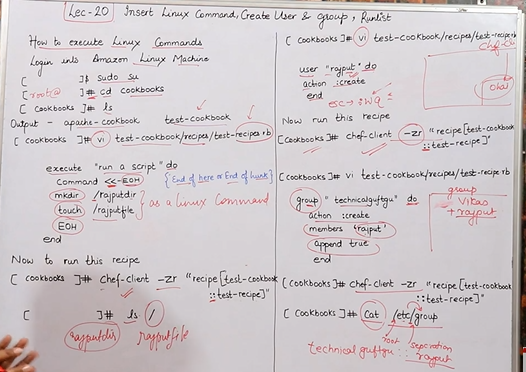 Lec-20 Insert Linux Command, Create User & group, Runlist
How to execute Linux Commands
Login into Amazon Linux Machine
[ ]$ sudo su
[root@ ]# cd cookbooks
[ cookbooks ]# ls
Output - apache-cookbook test-cookbook
[ cookbooks ]# vi test-cookbook/recipes/test-recipe.rb
execute "run a script" do
Command <<-EOH { End of here or End of hunk }
mkdir /rajputdir
touch /rajputfile } as a Linux Command
EOH
end
Now to run this recipe
[ cookbooks ]# chef-client -zr "recipe[test-cookbook
::test-recipe]"
[ ]# ls /
rajputdir rajputfile
[ cookbooks ]# vi test-cookbook/recipes/test-recipe.rb
user "rajput" do
action :create
end
esc → :wq
Ohai
Now run this recipe
[ cookbooks ]# chef-client -zr "recipe[test-cookbook
::test-recipe]"
[ cookbooks ]# vi test-cookbook/recipes/test-recipe.rb
group "technicalguftgu" do
action :create
members 'rajput'
append true
end
group
Vikas
+ rajput
[ cookbooks ]# chef-client -zr "recipe[test-cookbook
::test-recipe]"
[ cookbooks ]# Cat /etc/group
root seperation
technical guftgu :: rajput